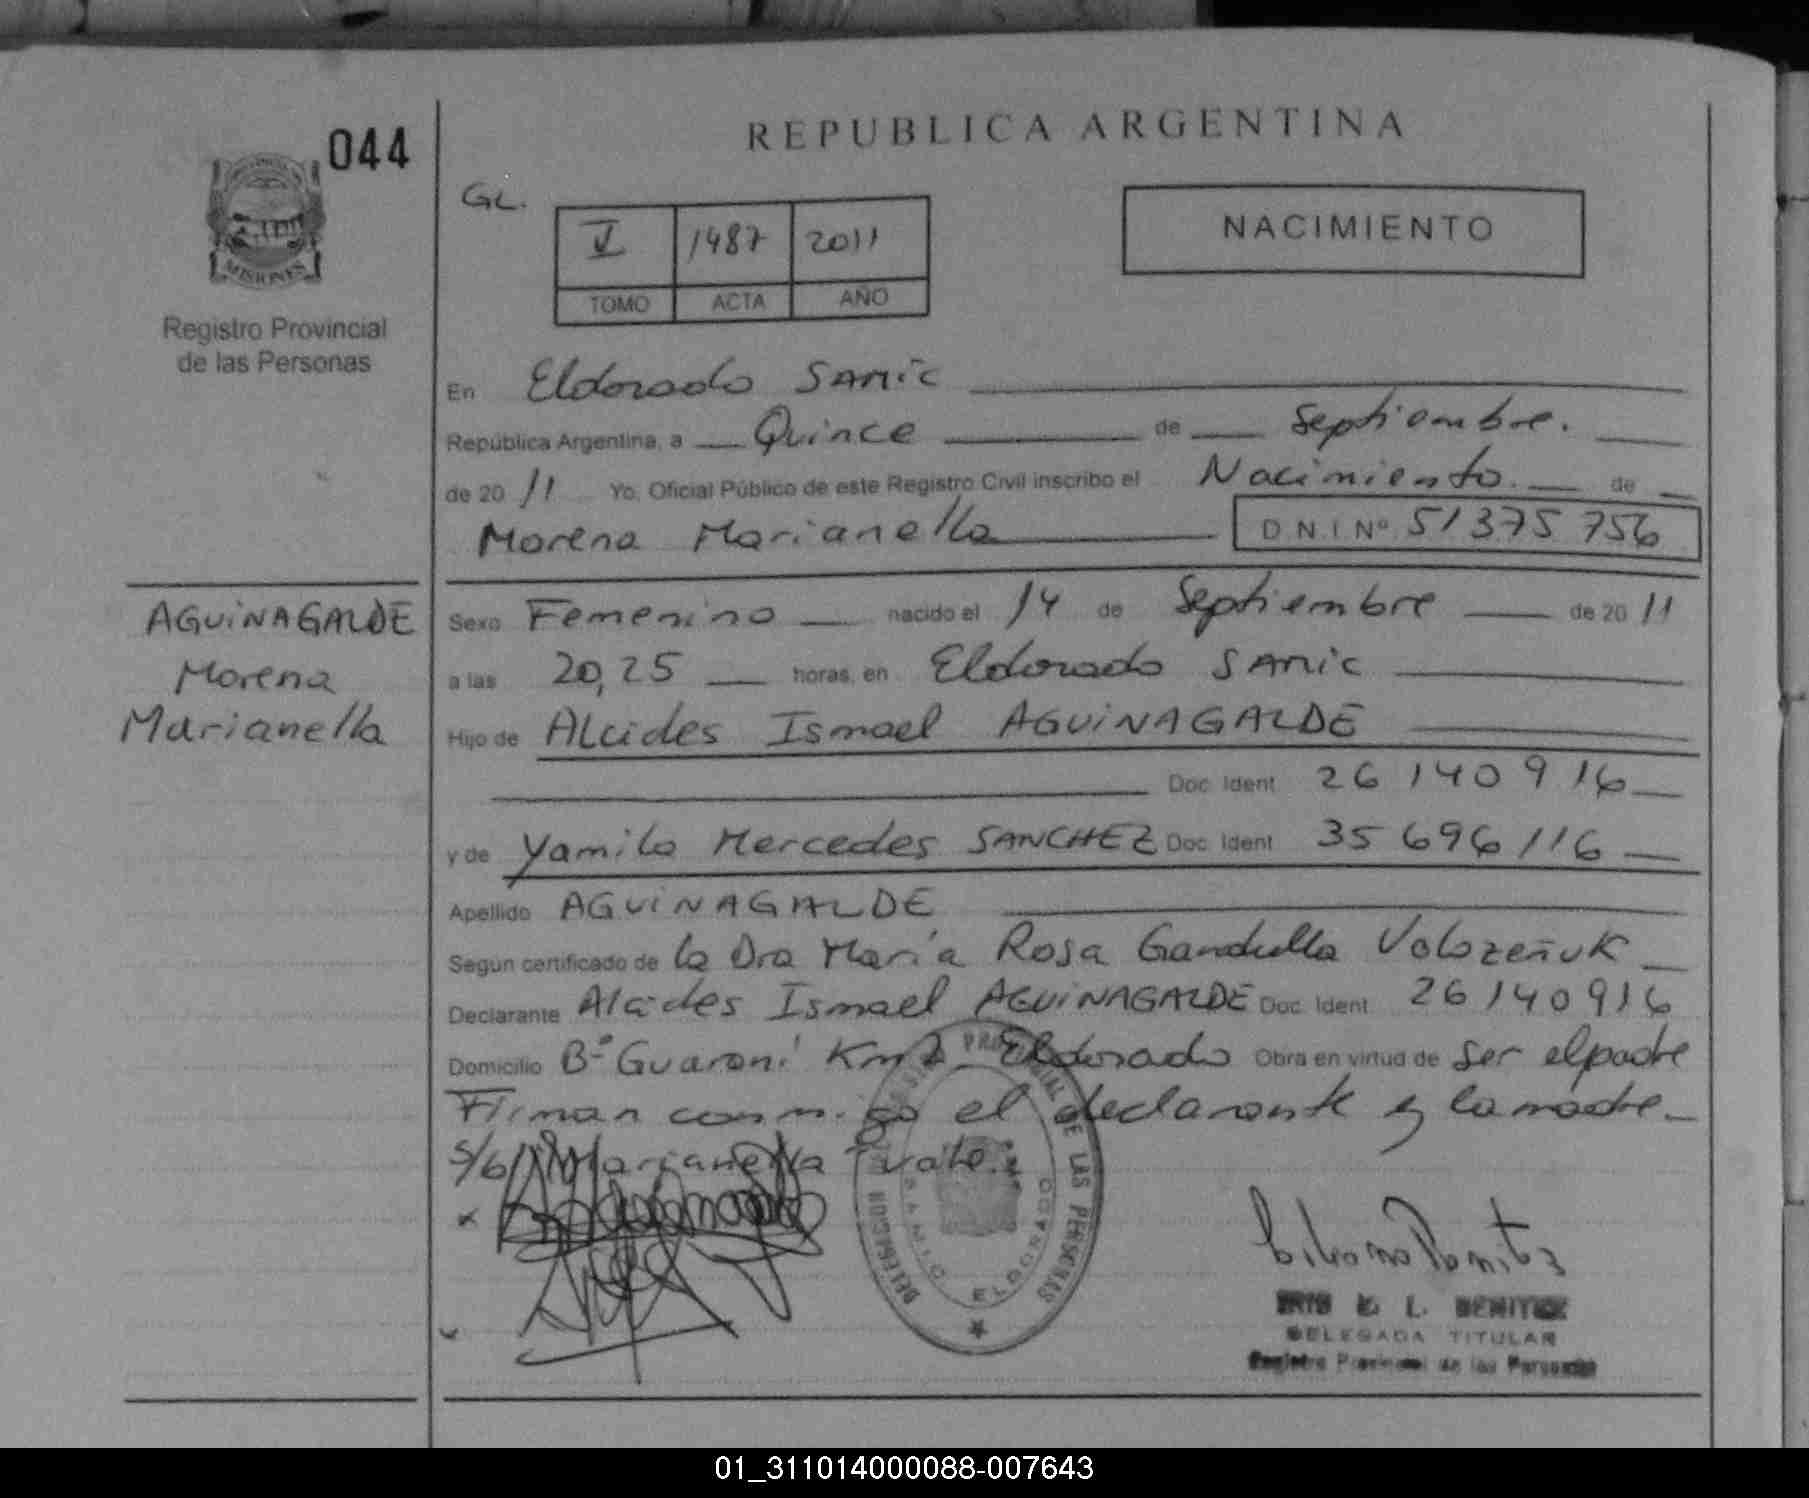 044
REPUBLICA ARGENTINA
MISIONES
Registro Provincial
de las Personas
GL.
V 1487 2011
TOMO ACTA AÑO
NACIMIENTO
En Eldorado SAMIC
República Argentina, a Quince de Septiembre.
de 20 11 Yo, Oficial Público de este Registro Civil inscribo el Nacimiento. de
Morena Marianella D.N.I Nº 51375756
AGUINAGALDE
Morena
Marianella
Sexo Femenino nacido el 14 de Septiembre de 20 11
a las 20,25 horas, en Eldorado SAMIC
Hijo de Alcides Ismael AGUINAGALDE
Doc. Ident. 26140916
y de Yamila Mercedes SANCHEZ Doc. Ident. 35696116
Apellido AGUINAGALDE
Según certificado de la Dra Maria Rosa Gandulla Volozeñuk
Declarante Alcides Ismael AGUINAGALDE Doc. Ident. 26140916
Domicilio Bº Guarani Km 2 Eldorado Obra en virtud de ser el padre
Firman conmigo el declarante y la madre
S/b Marianella vale.
DELEGACION PROVINCIAL DE LAS PERSONAS
SAMIC ELDORADO
L. BENITEZ
DELEGADA TITULAR
Registro Provincial de las Personas
01_311014000088-007643